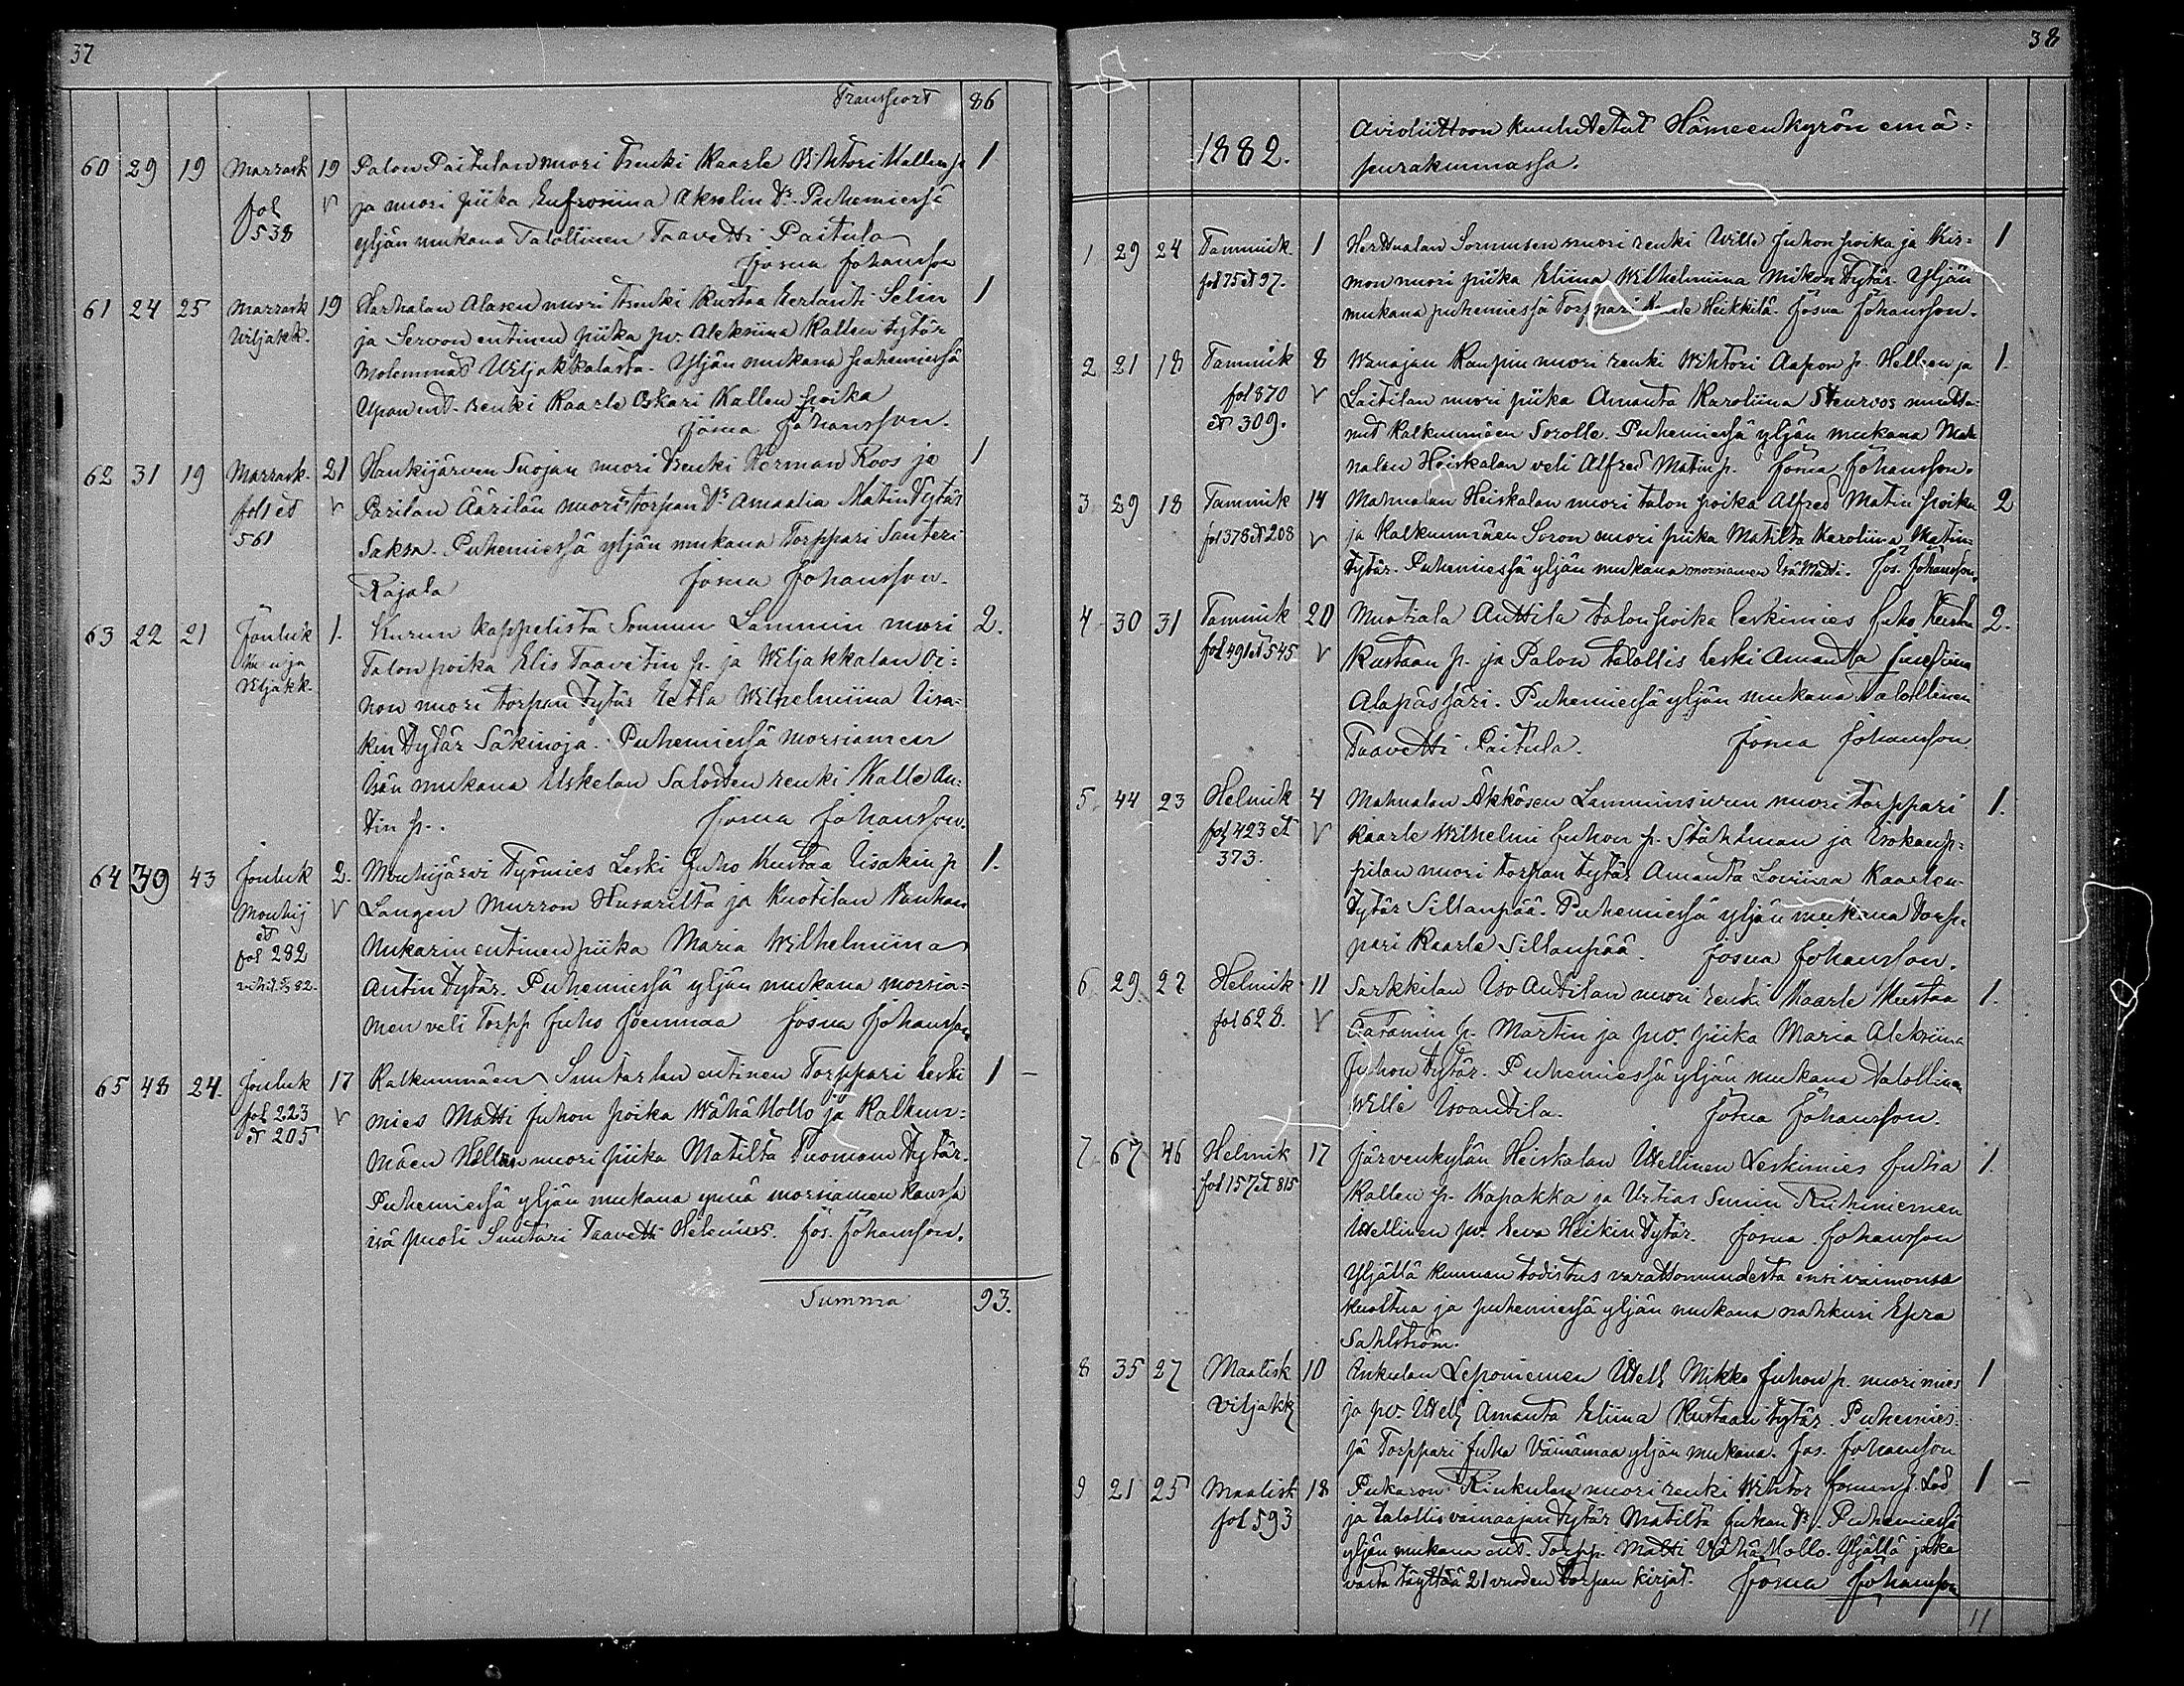 37
Transport 86
60 29 19 Marrask 19 Palon Paitulan nuori renki Kaarle Wihtori Kallen p. 1
fol 538 v ja nuori piika Eufrosiina Akselin Tr. Puhemiessä
yljän mukana Talollinen Taavetti Paitula
Josua Johansson
61 24 25 Marrask 19 Harhalan Alasen nuori renki Kustaa Eerlantti Selin 1
Viljakk. ja Servon entinen piika pv. Aleksiina Kallen tytär
Molemmat Viljakkalasta. Yljän mukana puhemiessä
ent. renki Kaarle Oskari Kallen poika
Josua Johansson.
62 31 19 Marrask. 21 Hankijärven Suojan nuori renki Herman Roos ja 1
fol 1 et v Parilan Äärilän nuori torpan Tr Amaalia Matin Tytär
561 Saksa. Puhemiessä yljän mukana Torppari Santeri
Rajala Josua Johansson.
63 22 21 Jouluk 1. Kurun kappelista Lammin nuori 2.
Talon poika Elis Taavetin p. ja Wiljakkalan Oi=
Viljakk. non nuori torpan tytär Eetla Wilhelmiina Iisa=
kin tytär Säkinoja. Puhemiessä morsiamen
Isän mukana Uskelan Salosten renki Kalle An=
tin p. Josua Johansson.
64 39 43 Jouluk 2. Mouhijärvi Tyrmies Leski Juho Kustaa Iisakin p 1.
Mouhij v Langen Murron Husarilta ja Kuotilan Vanhan
et
fol 282 Nukarin entinen piika Maria Wilhelmiina
82. Antin tytär. Puhemiessä yljän mukana morsia=
men veli Torpp Juho Joenmaa Josua Johansson
65 48 24. Jouluk 17 Kalkunmäen Suutarlan entinen Torppari leski 1 –
fol 223 v mies Matti Juhon poika Wähä Mollo ja Kalkun=
et 205 mäen Hellan nuori piika Matilta Tuomaan Tytär.
Puhemiessä yljän mukana ynnä morsiamen kanssa
isä puoli Suutari Taavetti Helenius. Jos. Johansson.
Summa 93.
38
1882. Avioliittoon kuulutetut Hämeenkyrön emä=
seurakunnassa.
1 29 24 Tammik. 1 Herttualan Sornusen nuori renki Wille Juhon poika ja Kir= 1
fol 75 et 97. mon nuori piika Eliina Wilhelmiina Mikon Tytär. Yljän
mukana puhemiessä Torppari Kaarle Heikkilä. Josua Johansson.
2 21 18 Tammik 8 Wanajan Raupin nuori renki Wihtori Aapon p. Hellen ja 1.
fol 870 v Laitilan nuori piika Amanta Karoliina Stenroos muutta=
et 309. nut Kalkunmäen Sorolle. Puhemiessä yljän mukana Mah
nalan Heiskalan veli Alfred Matin p. Josua Johansson.
3 29 18 Tammik 14 Mahnalan Heiskalan nuori talon poika Alfred Matin poika 2
fol 378 et 208 v ja Kalkunmäen Soron nuori piika Matilta Karoliina Matin=
tytär. Puhemiessä yljän mukana morsiamen Isä Matti. Jos. Johansson.
4 30 31 Tammik 20 Muotiala Anttila talon poika leskimies Juho Kusta 2.
fol 491 et 545 v Kustaan p. ja Palon talollis leski Amanta Josefiina
Alapässäri. Puhemiessä yljän mukana Talollinen
Taavetti Paitula. Josua Johansson
5 44 23 Helmik 4 Mahnalan Äkkösen Lamminsivun nuori torppari 1.
fol 423 et v Kaarle Wilhelmi Juhon p. Ståhlman ja
373. pilan nuori torpan tytär Amanta Loviina Kaarlen
tytär Sillanpää. Puhemiessä yljän mukana torp=
pari Kaarle Sillanpää. Josua Johansson.
6 29 27 Helmik 11 Sarkkilan Iso Antilan nuori renki Kaarle Kustaa 1.
fol 628. v Aatamin p. Martin ja pv. piika Maria Aleksiina
Juhon tytär. Puhemiessä yljän mukana talollinen
Wille Isoantila. Josua Johansson.
7 67 46 Helmik 17 Järvenkylän Heiskalan Itsellinen Leskimies Juha 1.
fol 157 et 815 Kallen p. Kapakka ja Urtias Sunin Ruhiniemen
Itsellinen pv. Eeva Heikin Tytär. Josua Johansson
Yljällä kunnan todistus varattomuudesta ensi vaimonsa
kuoltua ja puhemiessä yljän mukana nahkuri Epra
Sahlström.
8 35 27 Maalisk 10 Inkulan Leponiemen Itsell Mikko Juhon p. nuori mies 1
Viljakk ja pv. Itsell Amanta Eliina Kustaan tytär. Puhemies=
sä Torppari Juha Väinämaa yljän mukana. Jos. Johansson
9 21 25 Maalisk 18 Pukaron Rinkulan nuori renki Wihtor Josuan p. 1 –
fol 593 ja talollis vainaajan tytär Matilta Juhan Tr. Puhemiessä
yljän mukana ent. Torpp. Matti Vähä Mollo. Yljällä joka
vasta täyttää 21 vuoden torpan kirjat. Josua Johansson
11